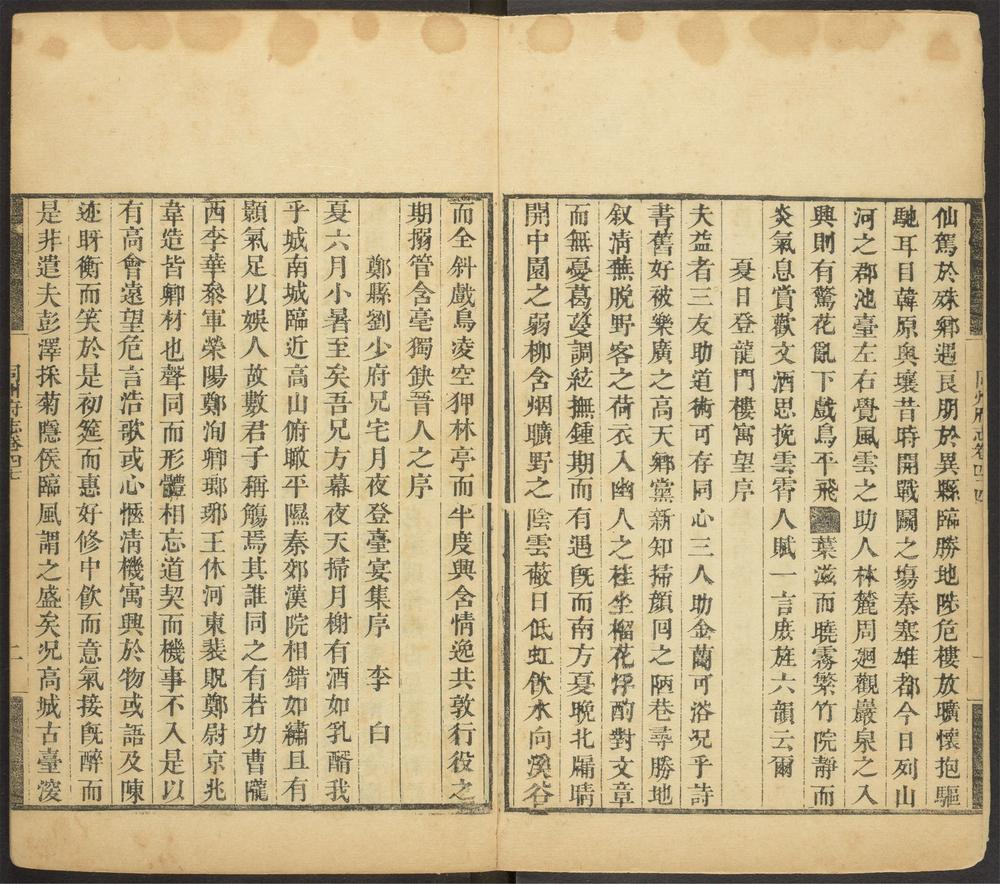 仙駕於殊鄉遇良朋於異縣臨勝地陟危樓放曠懷抱驅
馳耳目韓原奧壤昔時開戰鬬之場秦塞雄都今日列山
河之郡池臺左右覺風雲之助人林麓周廻觀巖泉之入
興則有驚花亂下戲鳥平飛葉滋而曉霧繁竹院靜而
炎氣息賞歡文酒思挽雲霄人賦一言庶旌六韻云爾
夏日登龍門樓寓望序
夫益者三友助道術可存同心三人助金蘭可浴况乎詩
書舊好被樂廣之高天鄉黨新知掃顔囘之陋巷尋勝地
叙淸蕪脫野客之荷衣入幽人之桂坐榴花浮酌對文章
而無憂葛蔓調絃撫鍾期而有遇旣而南方夏晚北牖晴
開中園之弱柳含烟曠野之陰雲蔽日低虹飮水向溪谷
而全斜戲鳥凌空狎林亭而半度興含情逸共敦行役之
期搦管含毫獨缺晉人之序
鄭縣劉少府兄宅月夜登臺宴集序 李白
夏六月小暑至矣吾兄方幕夜天掃月榭有酒如乳醑我
乎城南城臨近高山俯瞰平隰秦郊漢院相錯如繡且有
顥氣足以娛人故數君子稱觴焉其誰同之有若功曹隴
西李華叅軍榮陽鄭洵卿瑯琊王休河東裴貺鄭尉京兆
韋造皆卿材也聲同而形體相忘道契而機事不入是以
有高會遠望危言浩歌或心愜淸機寓興於物或語及陳
迹盱衡而笑於是初筵而惠好修中飮而意氣接旣醉而
是非遣夫彭澤採菊隱侯臨風謂之盛矣况高城古臺濅
同州府志卷四十四
二